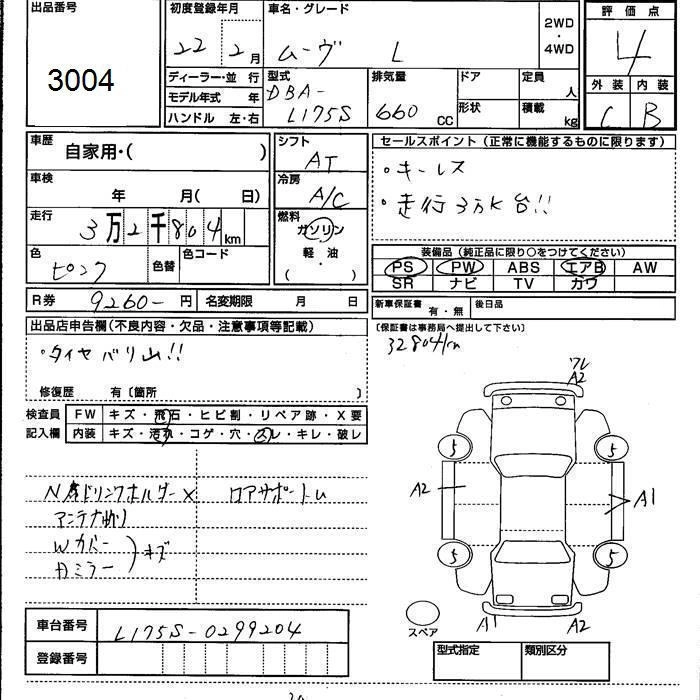 出品番号
3004
初度登録年月
22 2月
車名・グレード
ムーヴ L
2WD
・
4WD
評価点
4
外装 内装
C B
ディーラー・並 行
モデル年式 年
ハンドル 左・右
型式
DBA-
L175S
排気量
660 CC
ドア
形状
定員 人
積載 kg
車歴
自家用・( )
車検
年 月( 日)
走行
3万2千804km
色
ピンク
色替
色コード
シフト
AT
冷房
A/C
燃料
ガソリン
軽・油
( )
セールスポイント(正常に機能するものに限ります)
・キーレス
・走行3万K台!!
装備品(純正品に限り○をつけてください)
PS PW ABS エアB AW
SR ナビ TV カワ
R券 9260- 円
名変期限 月 日
新車保証書
有・無
後日品
(保証書は事務局へ提出して下さい)
出品店申告欄(不良内容・欠品・注意事項等記載)
・タイヤバリ山!!
修復歴 有〔箇所 〕
32804km
検査員
記入欄
FW キズ・飛石・ヒビ割・リペア跡・X要
内装 キズ・汚れ・コゲ・穴・スレ・キレ・破レ
ドリンクホルダー× ロアサポートム
アンテナ
Wカバー
ミラー
キズ
ワレ
A2
5 5
A2 A1
5 5
A1 A2
スペア
車台番号 L175S-0299204
登録番号
型式指定 類別区分